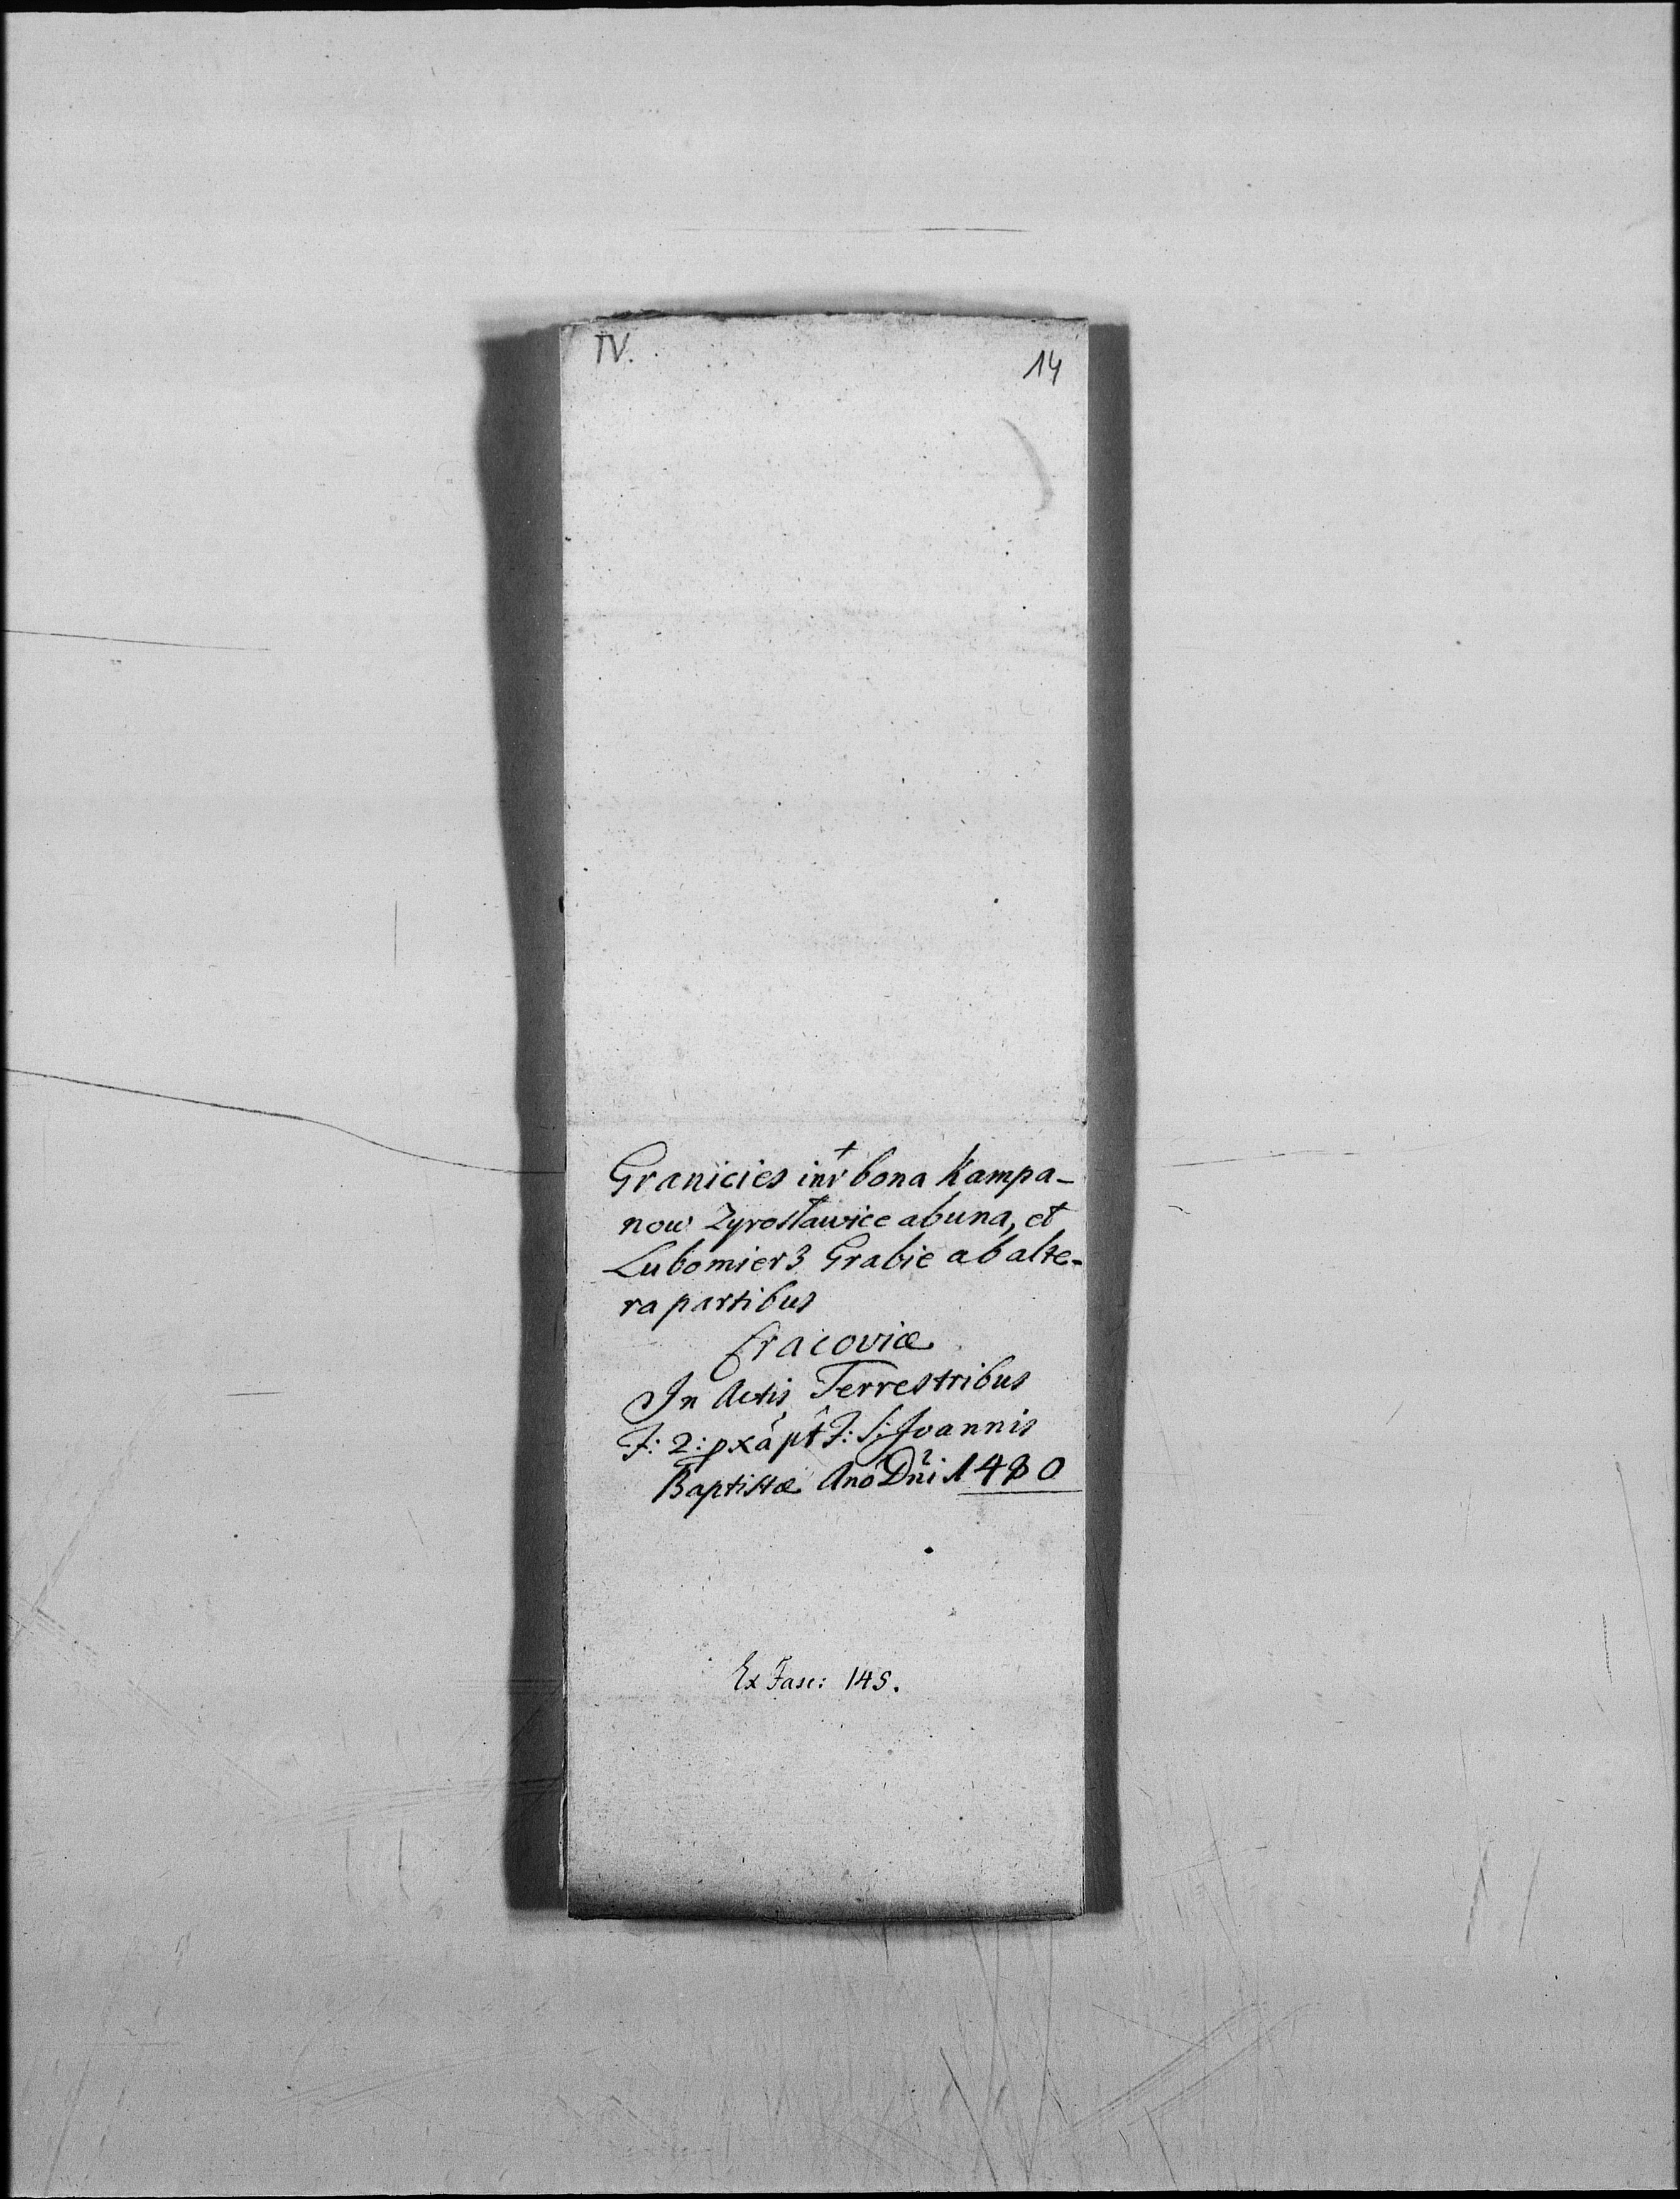 IV.
14
Granicies intr bona Kampa-
now Zyrosławice ab una, et
Lubomierz Grabie ab alte-
ra partibus
Cracoviæ
In Actis Terrestribus
F: 2: pxâ pt F: S: Joannis
Baptistæ Anô Dñi 1480
Ex Fasc: 145.